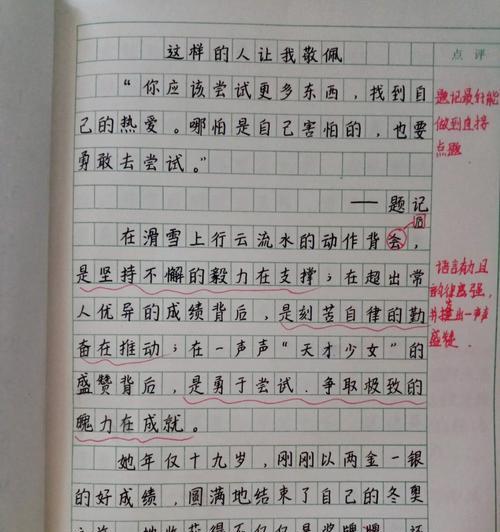 点评
这样的人让我敬佩
“你应该尝试更多东西，找到自
己的热爱。哪怕是自己害怕的，也要
勇敢去尝试。”
——题记
后
在滑雪上行云流水的动作背会，
是坚持不懈的毅力在支撑；在超出常
人优异的成绩背后，是刻苦自律的勤
奋在推动；在一声声“天才少女”的
盛赞背后，是勇于尝试、争取极致的
魄力在成就。
她年仅十九岁，刚刚以两金一银
的好成绩，圆满地结束了自己的冬奥
题记最好能
做到直接
点题
语言有力且
韵律感强，
一声声
盛赞